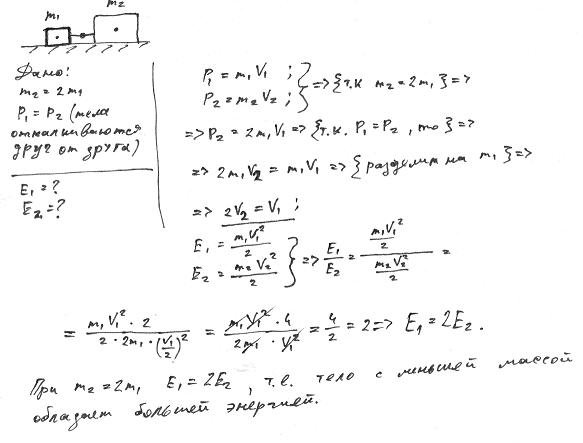 m₁ m₂
Дано:
m₂ = 2m₁
P₁ = P₂ (тела
отталкиваются
друг от друга)
E₁ = ?
E₂ = ?
P₁ = m₁V₁ ;
P₂ = m₂V₂ ; } => {т.к m₂ = 2m₁} =>
=> P₂ = 2m₁V₁ => {т.к. P₁ = P₂, то} =>
=> 2m₁V₂ = m₁V₁ => {разделит на m₁} =>
=> 2V₂ = V₁ ;
E₁ = m₁V₁²/2
E₂ = m₂V₂²/2 } => E₁/E₂ = (m₁V₁²/2)/(m₂V₂²/2) =
= (m₁V₁² · 2)/(2 · 2m₁ · (V₁/2)²) = (m₁V₁² · 4)/(2m₁ · V₁²) = 4/2 = 2 => E₁ = 2E₂.
При m₂ = 2m₁ E₁ = 2E₂, т.е. тело с меньшей массой
обладает большей энергией.